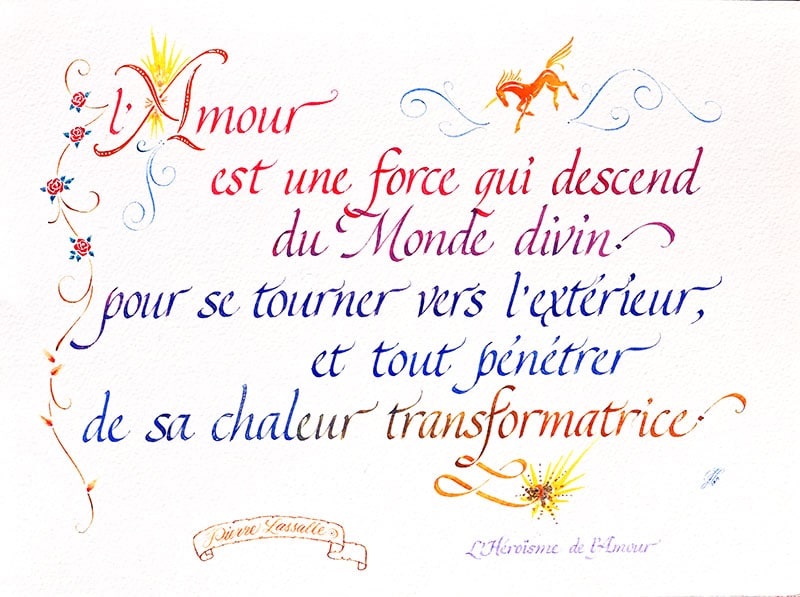 l'Amour
est une force qui descend
du Monde divin
pour se tourner vers l'extérieur,
et tout pénétrer
de sa chaleur transformatrice.
Pierre Lassalle
L'Héroïsme de l'Amour